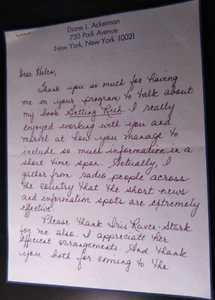 Diane J. Ackerman
720 Park Avenue
New York, New York 10021
Dear Helen,
Thank you so much for having
me on your program to talk about
my book Getting Rich. I really
enjoyed working with you and
marvel at how you manage to
include so much information in a
short time span. Actually, I
gather from radio people across
the country that the short news
and information spots are extremely
effective.
Please thank Iris Raven-Stark
for me also. I appreciate her
efficient arrangements. And thank
you both for coming to the